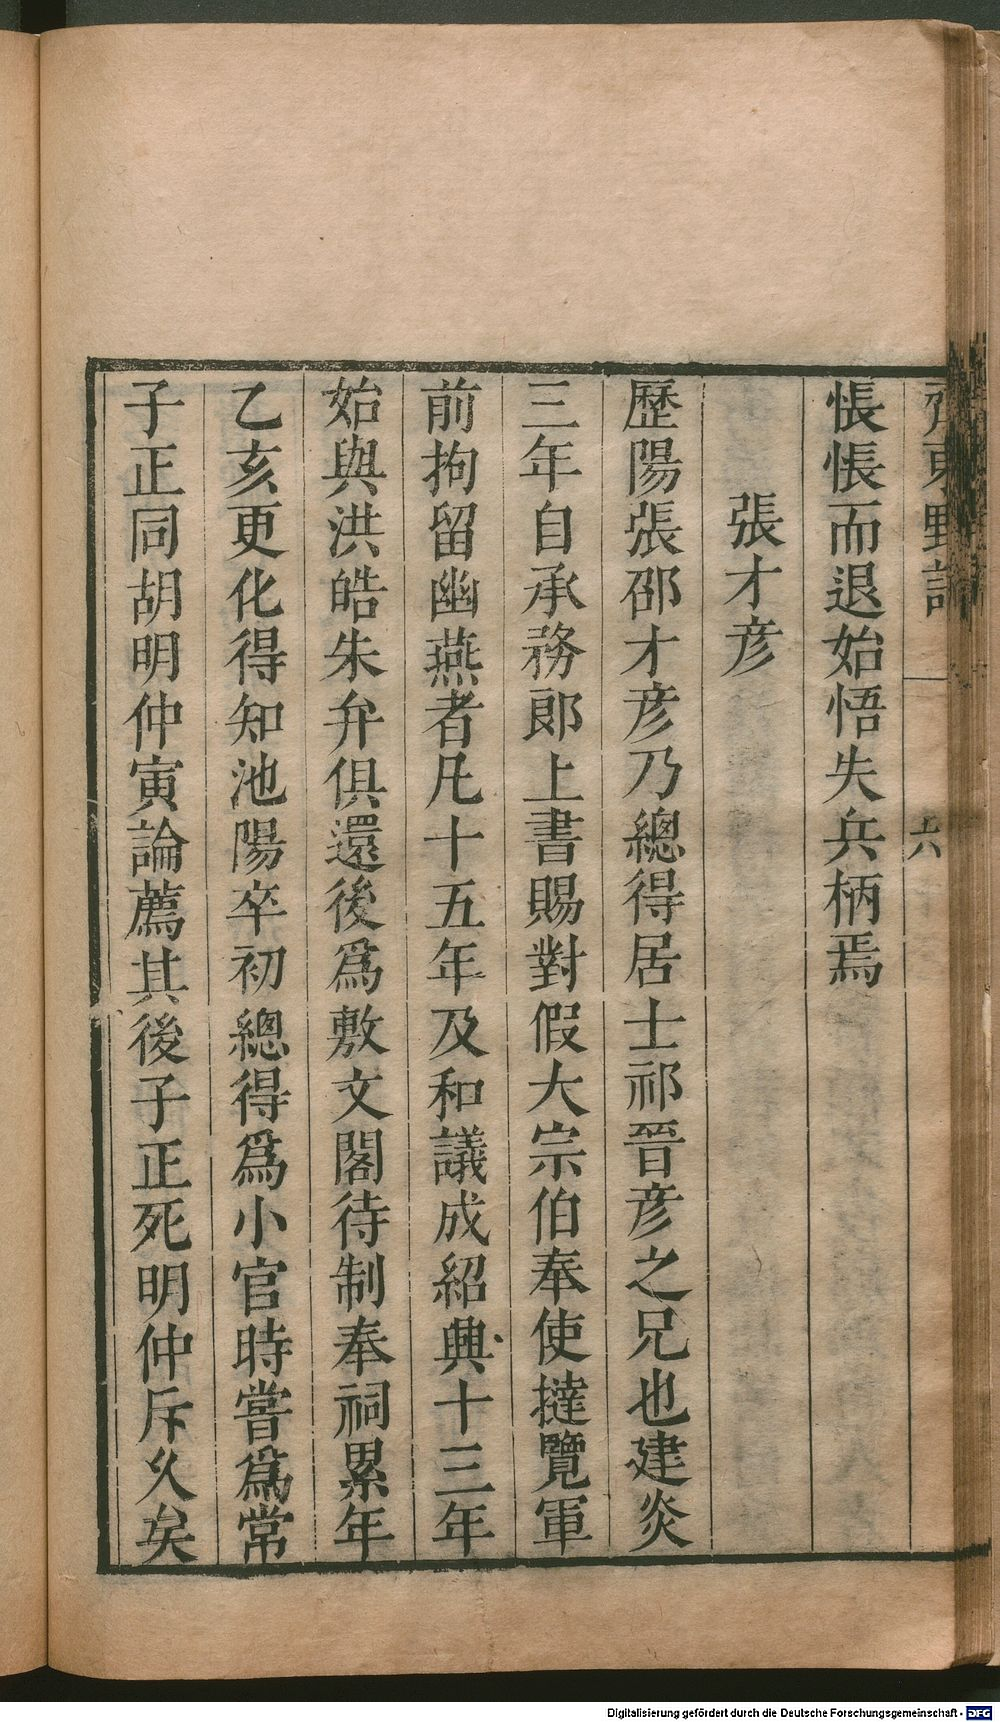 齊東野語 六
悵悵而退始悟失兵柄焉
張才彥
歷陽張邵才彥乃總得居士祁晉彥之兄也建炎
三年自承務郎上書賜對假大宗伯奉使撻覽軍
前拘留幽燕者凡十五年及和議成紹興十三年
始與洪皓朱弁俱還後爲敷文閣待制奉祠累年
乙亥更化得知池陽卒初總得爲小官時嘗爲常
子正同胡明仲寅論薦其後子正死明仲斥久矣
Digitalisierung gefördert durch die Deutsche Forschungsgemeinschaft - DFG